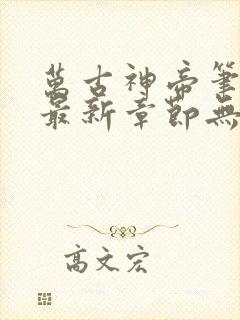 萬古神帝筆
最新章節無
高文宏